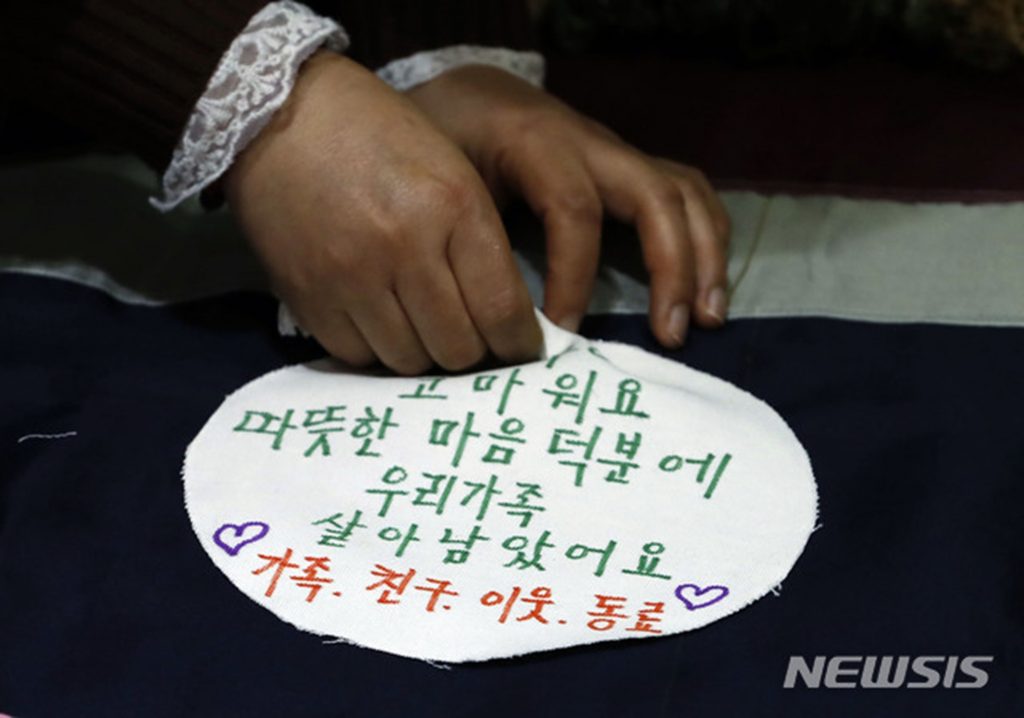 고마워요
따뜻한 마음 덕분에
우리가족
살아남았어요
가족. 친구. 이웃. 동료
NEWSIS